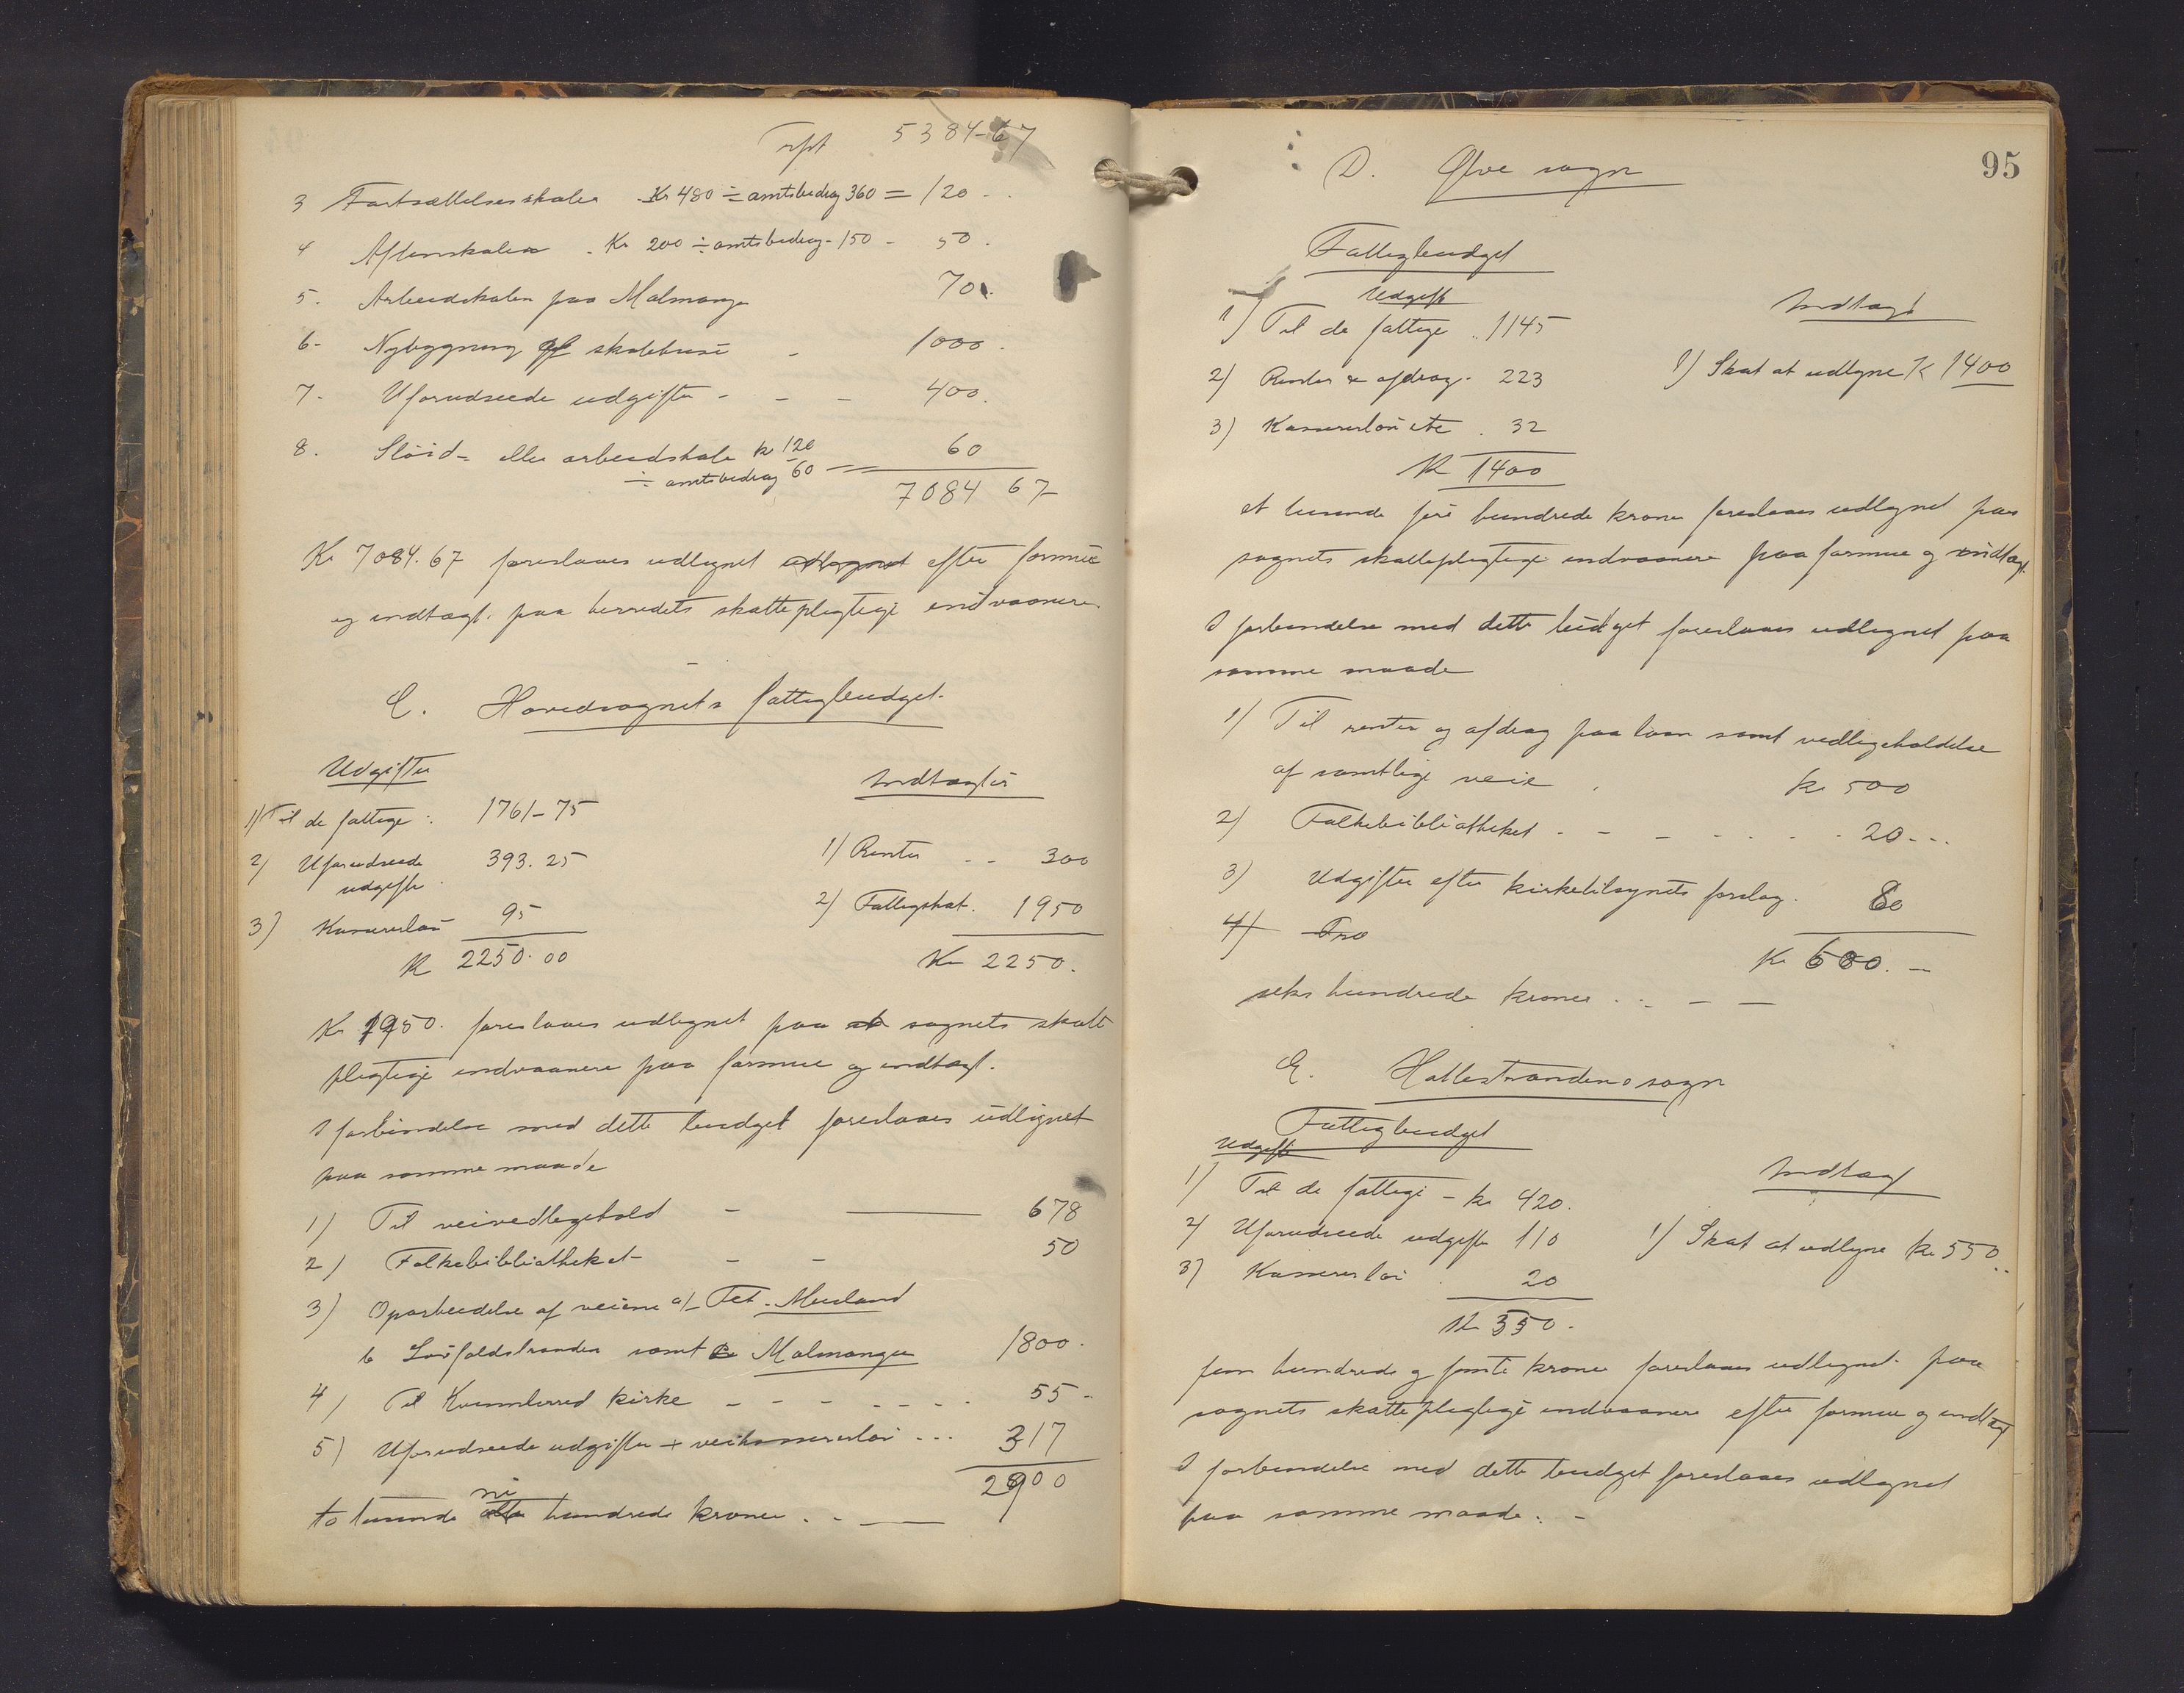 Trpt 5384-67
3 Fortsættelsesskoler Kr 480 ÷ amtsbidrag 360 = 120 -
4 Aftenskoler . Kr 200 ÷ amtsbidrag - 150 - 50 .
5. Arbeidskolen paa Malmanger 70.
6- Nybygning af skolehuse - 1000.
7- Uforudseede udgifter - - - 400.
8. Sløid- eller arbeidskole kr 120
÷ amtsbidrag 60 = 60
7084 67-
Kr 7084.67 foreslaaes udlignet udlignet efter formue
og indtægt. paa herredets skattepligtige indvaanere.
C. Hovedsognets fattigbudget.
Udgifter
Indtægter
1) Til de fattige : 1761-75
2) Uforudseede udgifter 393.25
1) Renter - - 300
3) Kassererløn 95
2) Fattigskat. 1950
K 2250.00
Kr 2250.
Kr 1950. foreslaaes udlignet paa sognets skatte
pligtige indvaanere paa formue og indtægt.
I forbindelse med dette budget foreslaaes udlignet
paa samme maade
1) Til veivedligehold - 678
2) Folkebibliotheket - - 50
3) Oparbeidelse af veiene a/ Tet - Musland
b Løvfaldstranden samt Malmanger 1800.
4) Til Kvinnherred kirke - - - - - - 55-
5) Uforudseede udgifter + veikassererløn ... 317
2900
to tusunde otte ni hundrede kroner . -
95
D. Ølve sogn
Fattigbudget
Udgift
Indtægt
1) Til de fattige .. 1145
2) Renter & afdrag - 223
1) Skat at udligne K 1400
3) Kassererløn etc . 32
K 1400
et tusunde fire hundrede kroner foreslaaes udlignet paa
sognets skattepligtige indvaanere paa formue og indtægt.
I forbindelse med dette budget foreslaaes udlignet paa
samme maade
1) Til renter og afdrag paa laan samt vedligeholdelse
af samtlige veie . kr 500
2) Folkebibliotheket - - - - - - 20 - -
3) Udgifter efter kirketilsynets forslag. 80
4)
Kr 600. -
seks hundrede kroner . - - -
E. Hatlestrandens sogn
Fattigbudget
Udgift
Indtægt
1) Til de fattige - kr 420.
2) Uforudseede udgifter 110
1) Skat at udligne kr 550..
3) Kassererløn . 20
K 550.
fem hundrede og femti kroner foreslaaes udlignet paa
sognets skattepligtige indvaanere efter formue og indtægt
I forbindelse med dette budget foreslaaes udlignet
paa samme maade. -